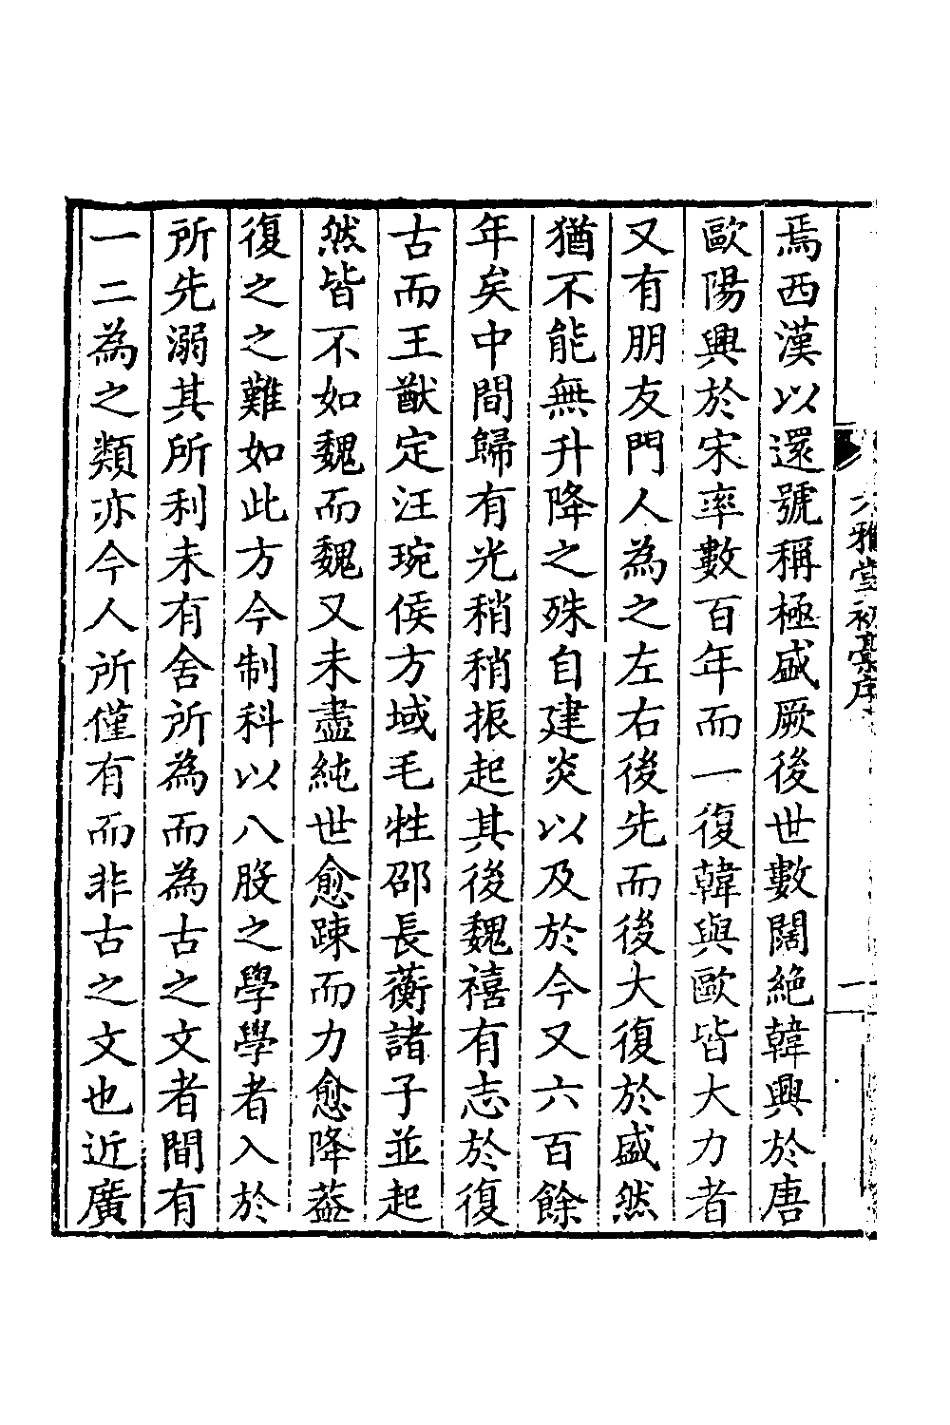 焉西漢以還號稱極盛厥後世數闊絶韓興於唐
歐陽興於宋率數百年而一復韓與歐皆大力者
又有朋友門人為之左右後先而後大復於盛然
猶不能無升降之殊自建炎以及於今又六百餘
年矣中間歸有光稍稍振起其後魏禧有志於復
古而王猷定汪琬侯方域毛甡邵長蘅諸子並起
然皆不如魏而魏又未盡純世愈踈而力愈降葢
復之之難如此方今制科以八股之學學者入於
所先溺其所利未有舍所為而為古之文者間有
一二為之類亦今人所僅有而非古之文也近廣
雅堂初稾序
一